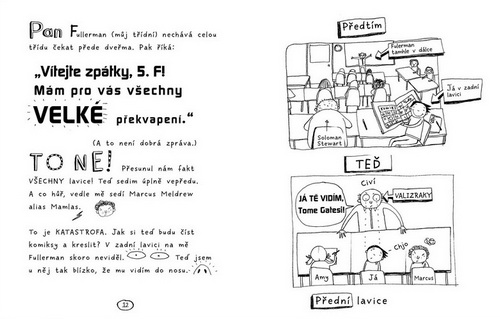 Pan Fullerman (můj třídní) nechává celou
třídu čekat přede dveřma. Pak říká:
„Vítejte zpátky, 5. F!
Mám pro vás všechny
VELKÉ překvapení.“
(A to není dobrá zpráva.)
TO NE! Přesunul nám fakt
VŠECHNY lavice! Teď sedím úplně vepředu.
A co hůř, vedle mě sedí Marcus Meldrew
alias Mamlas.
To je KATASTROFA. Jak si teď budu číst
komiksy a kreslit? V zadní lavici na mě
Fullerman skoro neviděl. Teď jsem
u něj tak blízko, že mu vidím do nosu.
Předtím
Fullerman
tamhle v dálce
Já v zadní
lavici
Soloman
Stewart
TEĎ
Civí
JÁ TĚ VIDÍM,
Tome Gatesi!
VALIZRAKY
Chjo
Amy
Já
Marcus
Přední lavice